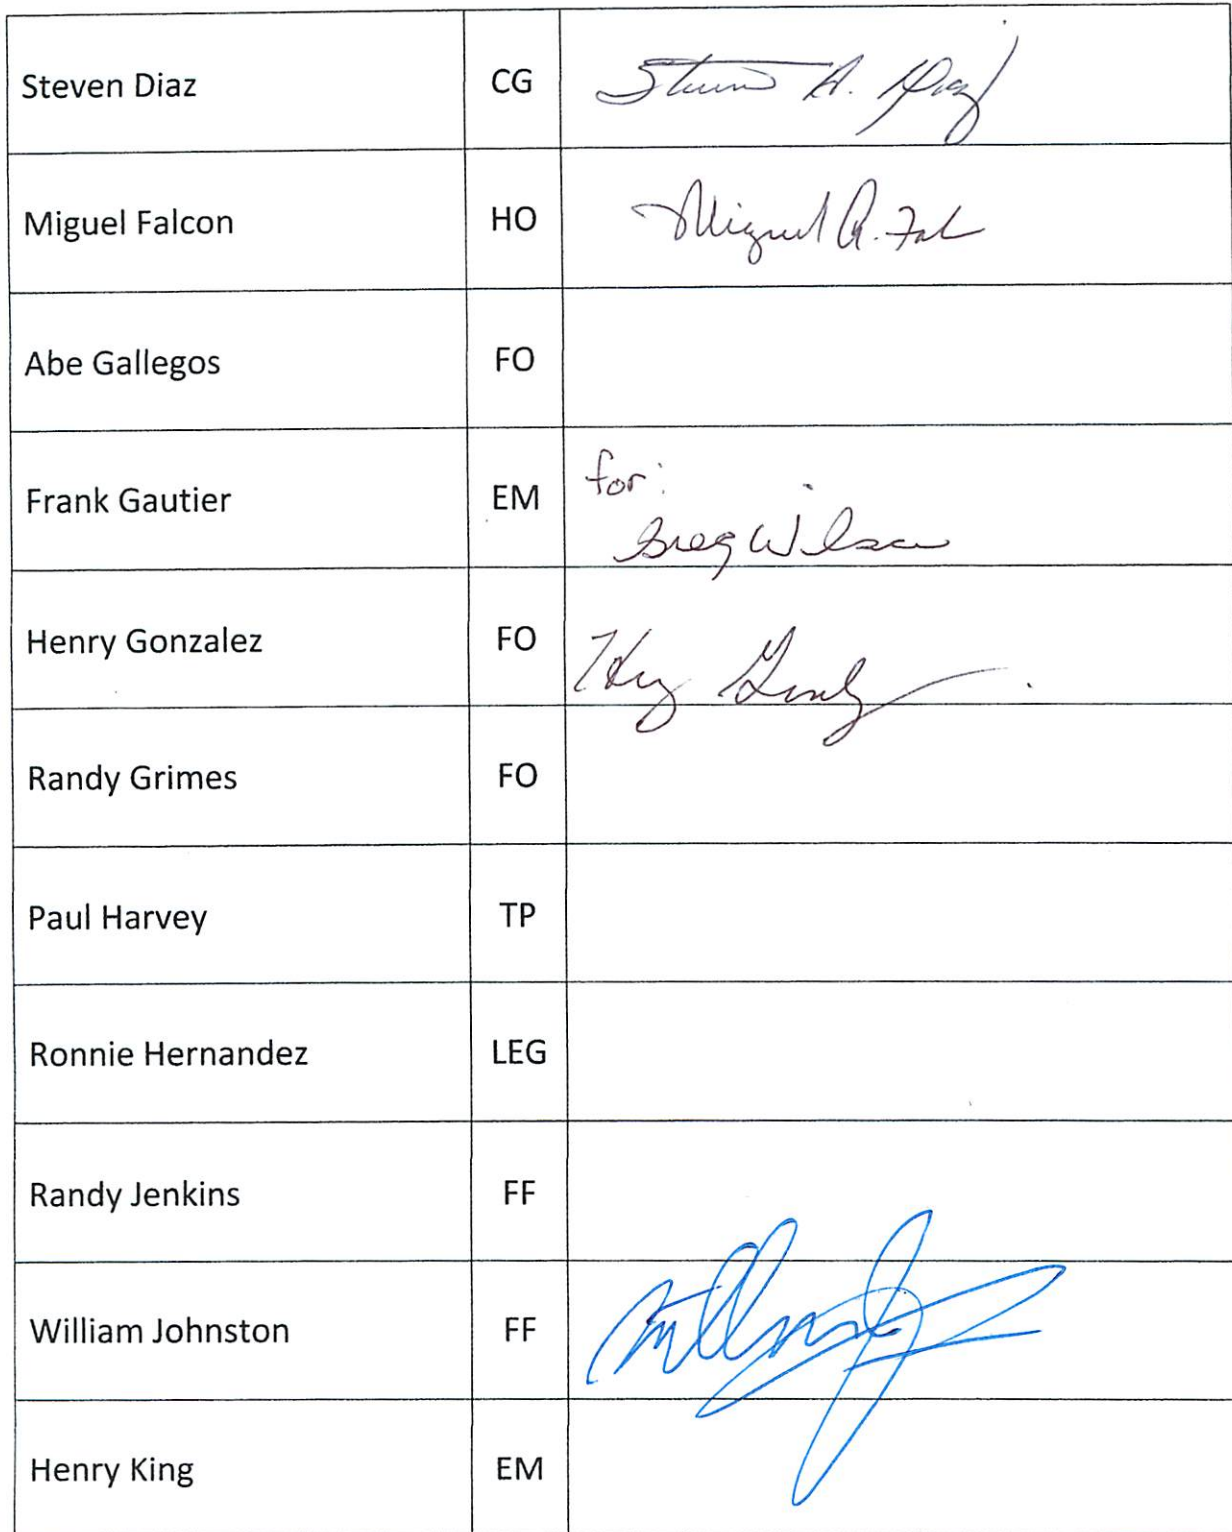 Steven Diaz CG Steven A. Diaz
Miguel Falcon HO Miguel A. Fal
Abe Gallegos FO
Frank Gautier EM for:
Greg Wilson
Henry Gonzalez FO
Randy Grimes FO
Paul Harvey TP
Ronnie Hernandez LEG
Randy Jenkins FF
William Johnston FF
Henry King EM